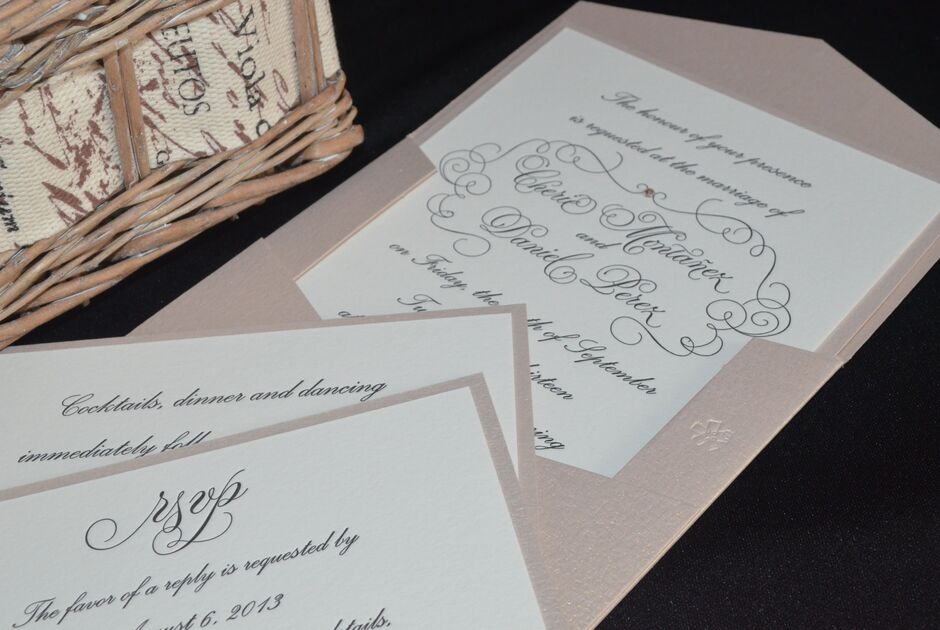 Viola
The honour of your presence
is requested at the marriage of
Cherie Montañez
and
Daniel Perez
on Friday, the
th of September
Cocktails, dinner and dancing
immediately
rsvp
The favor of a reply is requested by
6, 2013